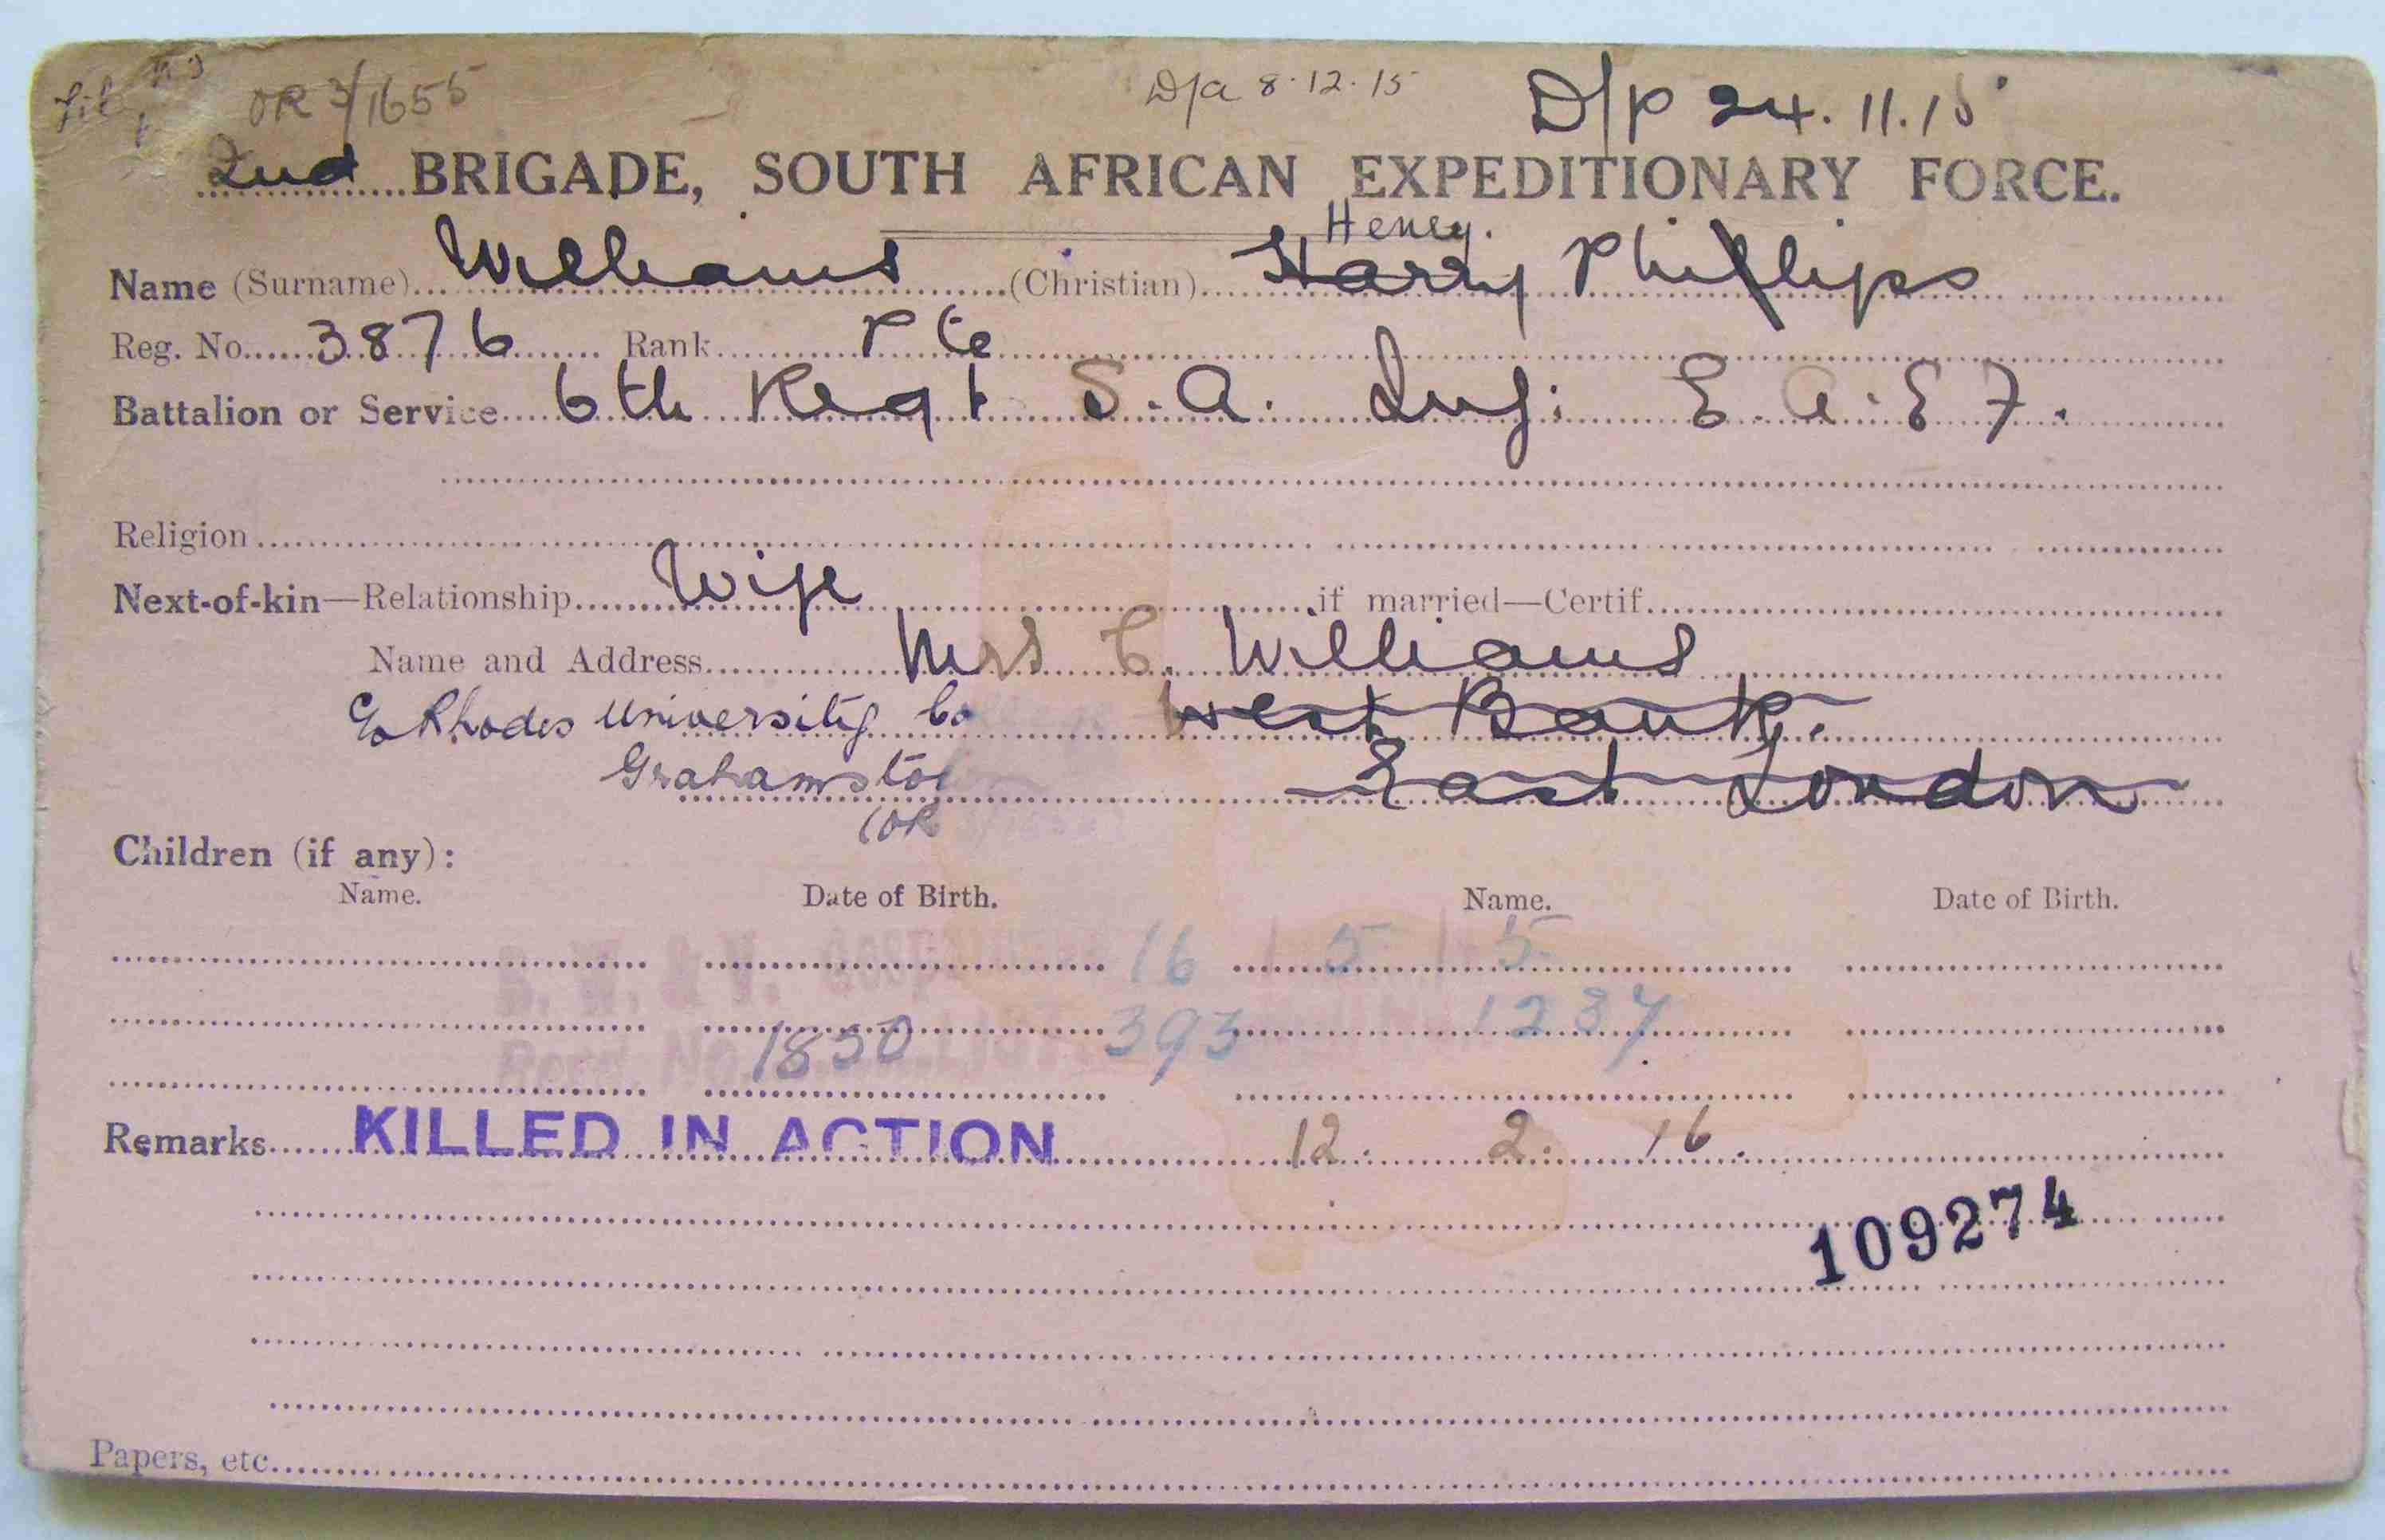 OR 3/1655 D/a 8.12.15 D/P 24.11.15
2nd BRIGADE, SOUTH AFRICAN EXPEDITIONARY FORCE.
Henry.
Name (Surname) Williams (Christian) Harry Phillips
Reg. No. 3876 Rank Pte
Battalion or Service 6th Regt S.A. Inf: E.A.E.F.
Religion
Next-of-kin—Relationship Wife if married—Certif.
Name and Address Mrs C. Williams
C/o Rhodes University Co West Bank.
Grahamstow East London
(OR
Children (if any):
Name. Date of Birth. Name. Date of Birth.
B. W. & V. 16 5 5
1850 393 1237
Remarks KILLED IN ACTION 12. 2. 16.
109274
Papers, etc.